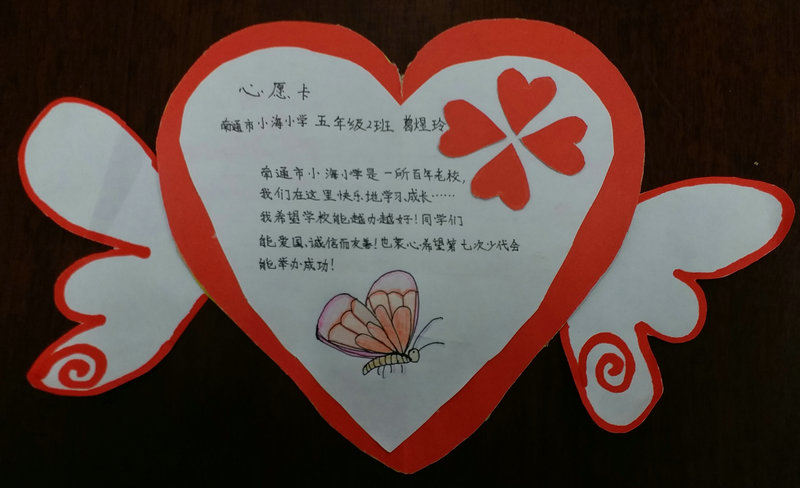 心愿卡
南通市小海小学 五年级2班 葛煜玲
南通市小海小学是一所百年老校,
我们在这里快乐地学习、成长……
我希望学校能越办越好!同学们
能爱国、诚信而友善!也衷心希望第七次少代会
能举办成功!